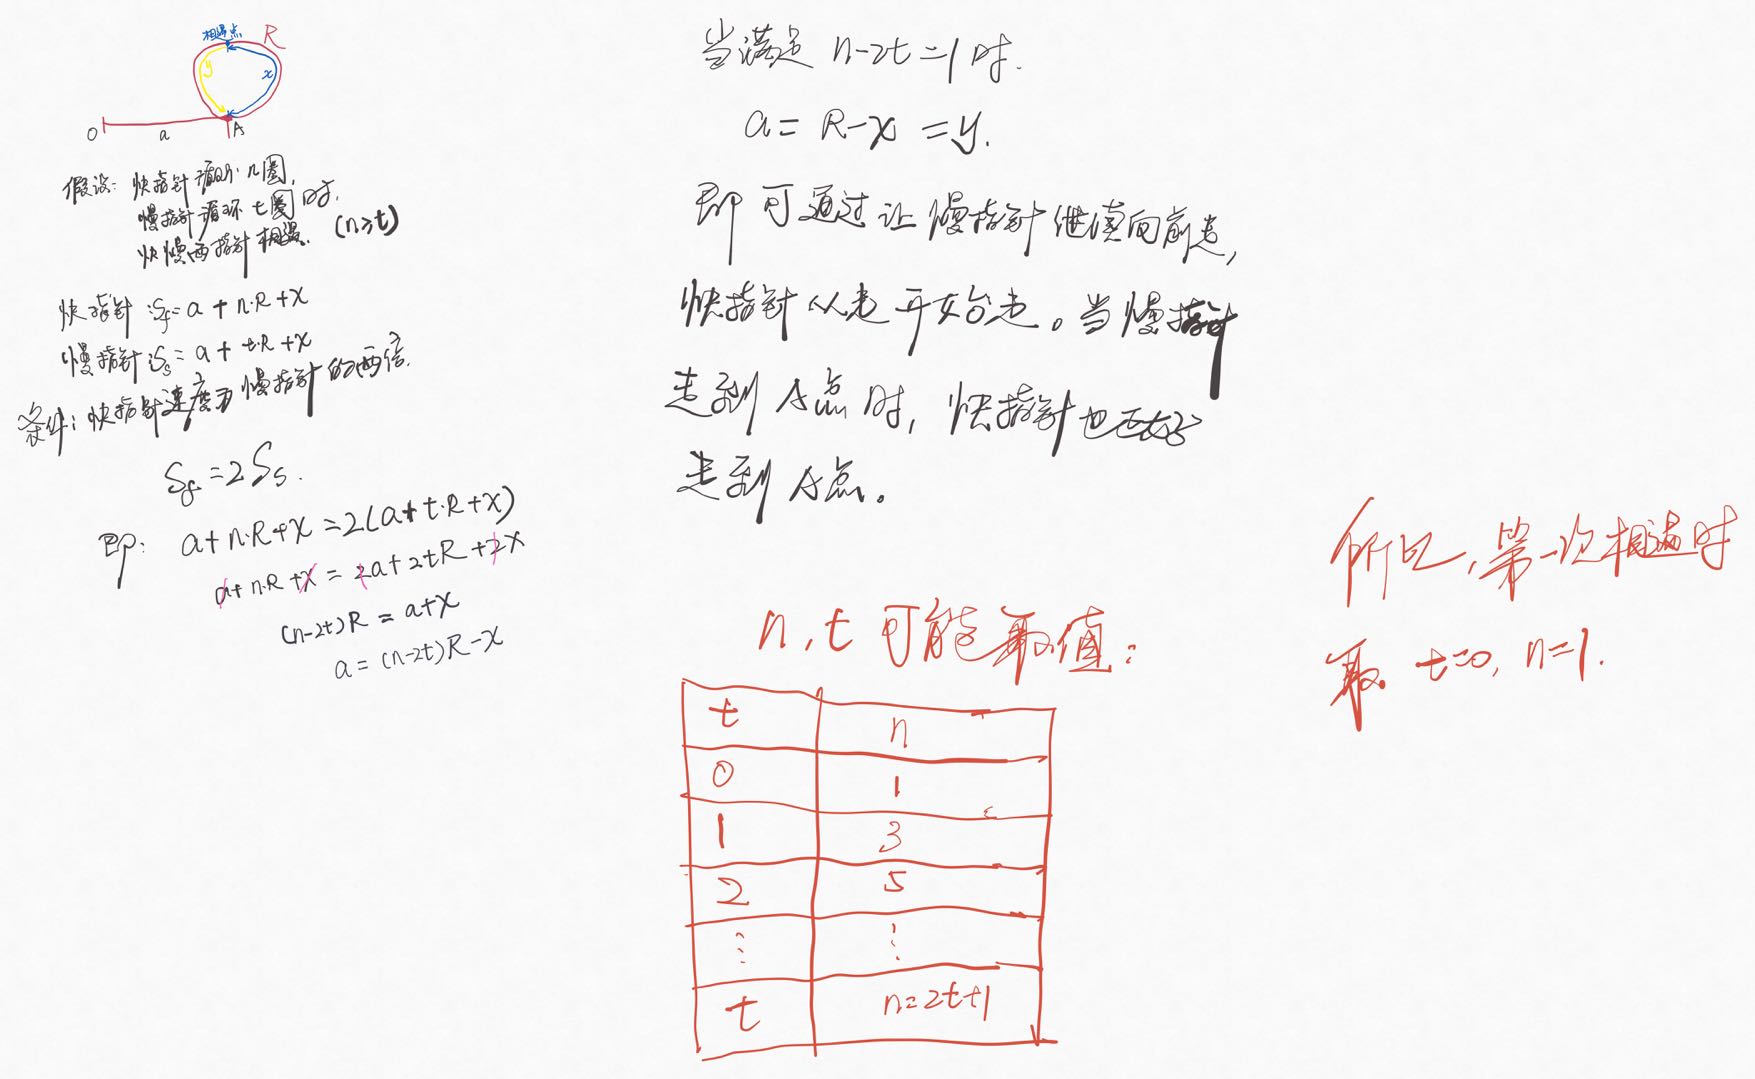 相遇点
R
y
x
O
a
A
假设: 快指针循环 n圈,
慢指针循环 t圈时,
快慢两指针相遇. (n>t)
快指针: Sf = a + n·R + x
慢指针: Ss = a + t·R + x
条件: 快指针速度为慢指针的两倍.
Sf = 2 Ss.
即: a + n·R + x = 2(a + t·R + x)
a + n·R + x = 2a + 2tR + 2x
(n-2t)R = a+x
a = (n-2t)R - x
当满足 n-2t=1 时.
a = R-x = y.
即可通过让慢指针继续向前走,
快指针从 开始走。当慢指针
走到A点时, 快指针也正好
走到A点。
n, t 可能取值:
t n
0 1
1 3
2 5
⋮ ⋮
t n=2t+1
所以, 第一次相遇时
取 t=0, n=1.